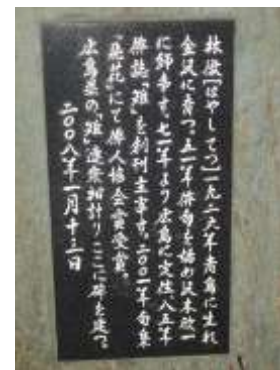 林徹[はやしてつ]一九二六年青島に生れ
金沢に育つ。五一年俳句を始め沢木欣一
に師事す。七一年より広島に定住、八五年
俳誌「雉」を創刊主宰す。二〇〇一年句集
「飛花」にて俳人協会賞受賞。
広島県の「雉」連衆相計り、ここに碑を建つ。
二〇〇八年一月十三日